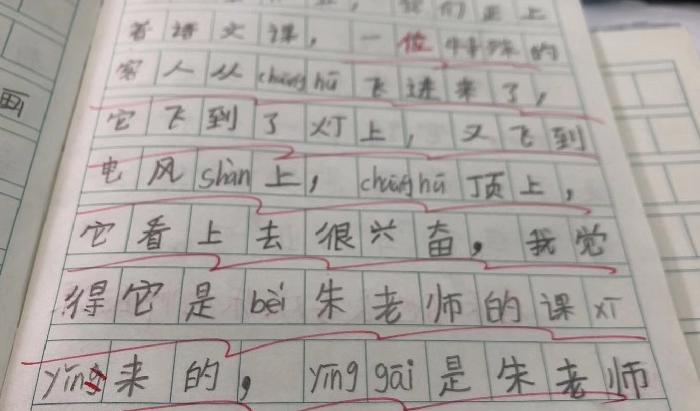 我们正上
着语文课，一位特殊的
客人从chuānghū飞进来了，
它飞到了灯上，又飞到
电风shàn上，chuānghū顶上，
它看上去很兴奋，我觉
得它是bèi朱老师的课xī
yīng来的，yīnggāi是朱老师
画